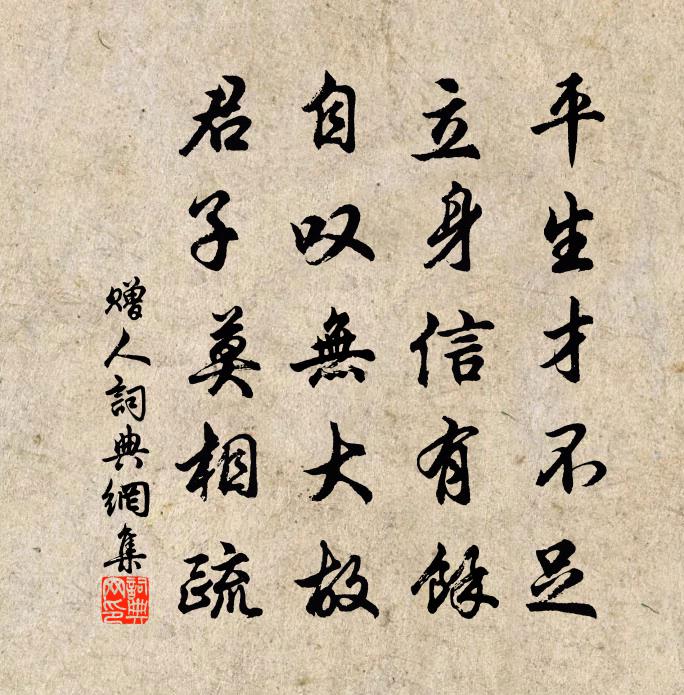 平生才不足
立身信有餘
自叹無大故
君子莫相疏
贈人詞典網集
詞典
网印